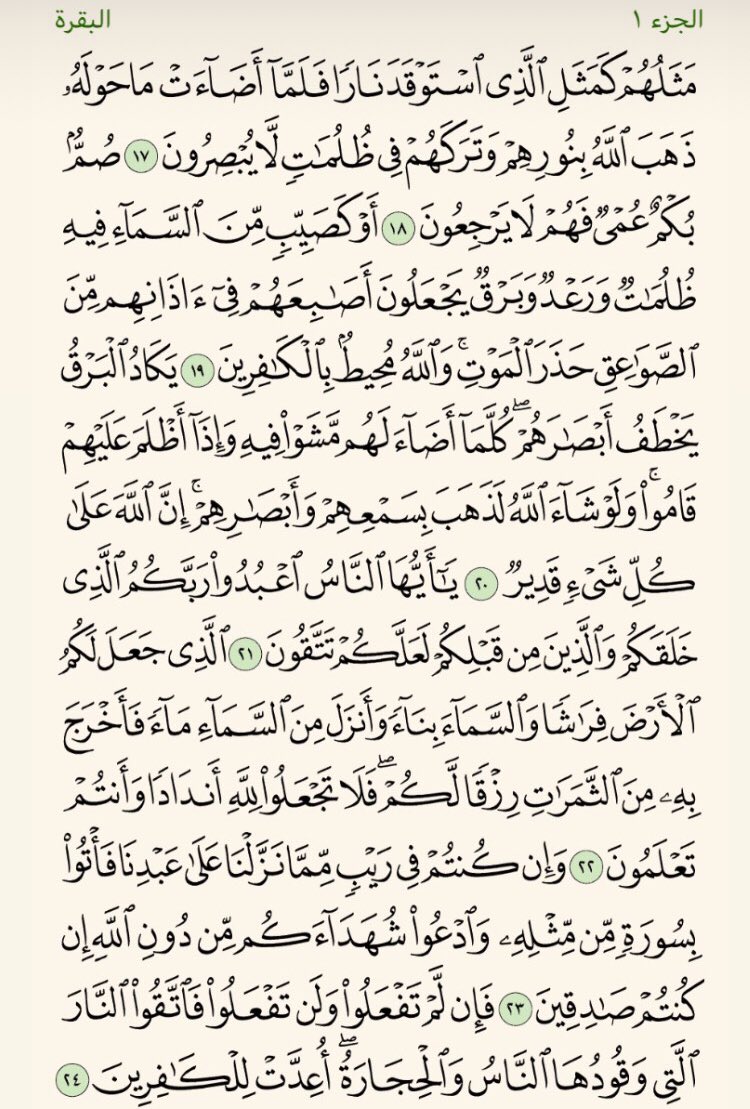 الجزء ١ البقرة
مَثَلُهُمْ كَمَثَلِ ٱلَّذِى ٱسْتَوْقَدَ نَارًا فَلَمَّآ أَضَآءَتْ مَا حَوْلَهُۥ
ذَهَبَ ٱللَّهُ بِنُورِهِمْ وَتَرَكَهُمْ فِى ظُلُمَـٰتٍ لَّا يُبْصِرُونَ ١٧ صُمٌّۢ
بُكْمٌ عُمْىٌ فَهُمْ لَا يَرْجِعُونَ ١٨ أَوْ كَصَيِّبٍ مِّنَ ٱلسَّمَآءِ فِيهِ
ظُلُمَـٰتٌ وَرَعْدٌ وَبَرْقٌ يَجْعَلُونَ أَصَـٰبِعَهُمْ فِىٓ ءَاذَانِهِم مِّنَ
ٱلصَّوَٰعِقِ حَذَرَ ٱلْمَوْتِ ۚ وَٱللَّهُ مُحِيطٌۢ بِٱلْكَـٰفِرِينَ ١٩ يَكَادُ ٱلْبَرْقُ
يَخْطَفُ أَبْصَـٰرَهُمْ ۖ كُلَّمَآ أَضَآءَ لَهُم مَّشَوْا۟ فِيهِ وَإِذَآ أَظْلَمَ عَلَيْهِمْ
قَامُوا۟ ۚ وَلَوْ شَآءَ ٱللَّهُ لَذَهَبَ بِسَمْعِهِمْ وَأَبْصَـٰرِهِمْ ۚ إِنَّ ٱللَّهَ عَلَىٰ
كُلِّ شَىْءٍ قَدِيرٌ ٢٠ يَـٰٓأَيُّهَا ٱلنَّاسُ ٱعْبُدُوا۟ رَبَّكُمُ ٱلَّذِى
خَلَقَكُمْ وَٱلَّذِينَ مِن قَبْلِكُمْ لَعَلَّكُمْ تَتَّقُونَ ٢١ ٱلَّذِى جَعَلَ لَكُمُ
ٱلْأَرْضَ فِرَٰشًا وَٱلسَّمَآءَ بِنَآءً وَأَنزَلَ مِنَ ٱلسَّمَآءِ مَآءً فَأَخْرَجَ
بِهِۦ مِنَ ٱلثَّمَرَٰتِ رِزْقًا لَّكُمْ ۖ فَلَا تَجْعَلُوا۟ لِلَّهِ أَندَادًا وَأَنتُمْ
تَعْلَمُونَ ٢٢ وَإِن كُنتُمْ فِى رَيْبٍ مِّمَّا نَزَّلْنَا عَلَىٰ عَبْدِنَا فَأْتُوا۟
بِسُورَةٍ مِّن مِّثْلِهِۦ وَٱدْعُوا۟ شُهَدَآءَكُم مِّن دُونِ ٱللَّهِ إِن
كُنتُمْ صَـٰدِقِينَ ٢٣ فَإِن لَّمْ تَفْعَلُوا۟ وَلَن تَفْعَلُوا۟ فَٱتَّقُوا۟ ٱلنَّارَ
ٱلَّتِى وَقُودُهَا ٱلنَّاسُ وَٱلْحِجَارَةُ ۖ أُعِدَّتْ لِلْكَـٰفِرِينَ ٢٤